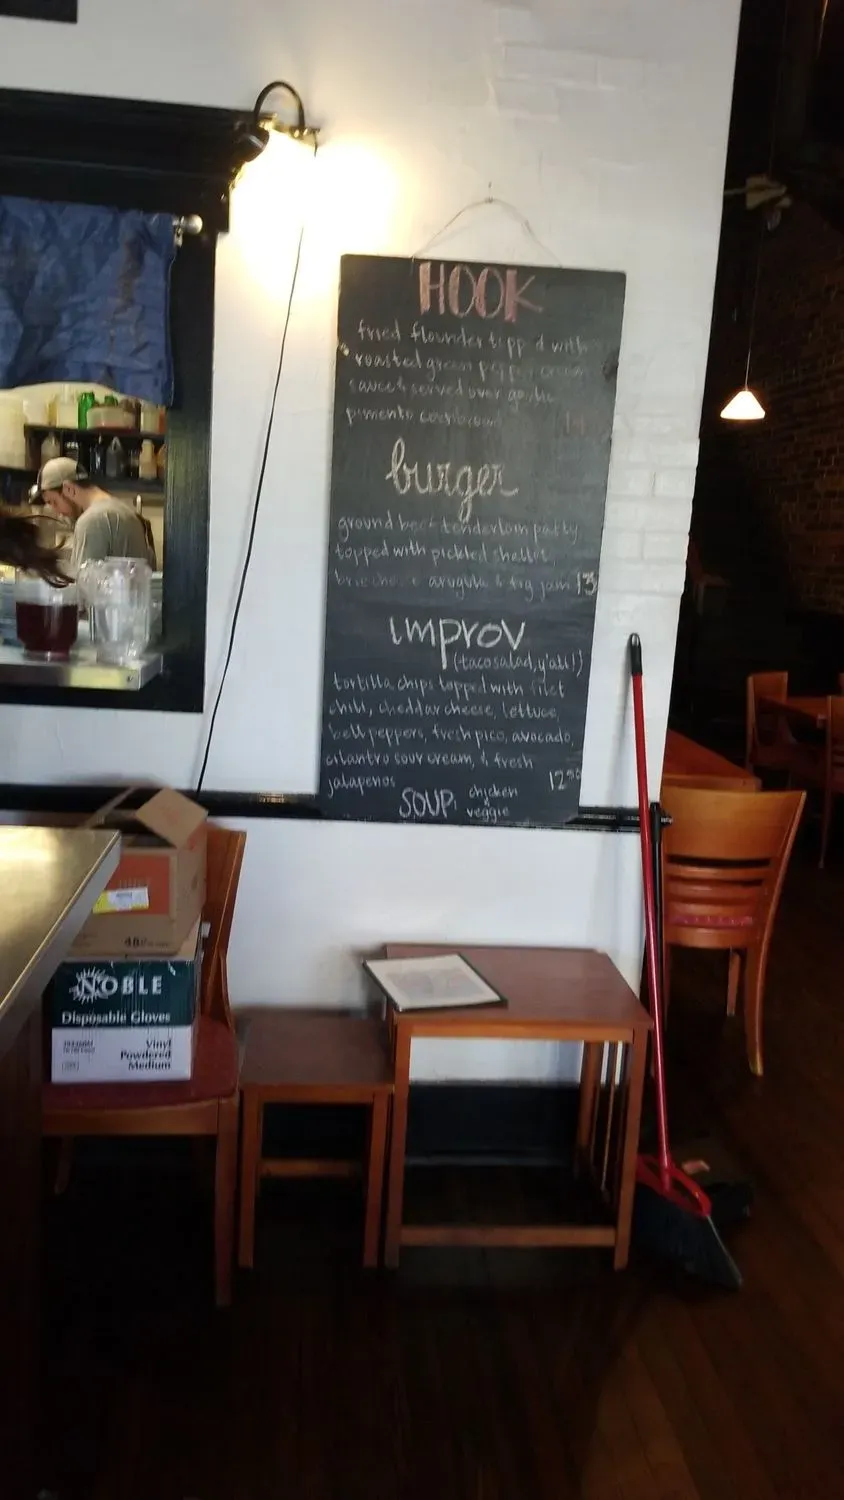 HOOK
fried flounder topp d with
roasted green pepper cream
sauce & served over garlic
pimento cornbread 14
burger
ground beef tenderloin patty
topped with pickled shallots,
brie cheese arugula & fig jam 13
improv
(taco salad, y'all!)
tortilla chips topped with filet
chili, cheddar cheese, lettuce,
bell peppers, fresh pico, avocado,
cilantro sour cream, & fresh
jalapeños 12.50
SOUP: chicken
veggie
NOBLE
Disposable Gloves
Vinyl
Powdered
Medium